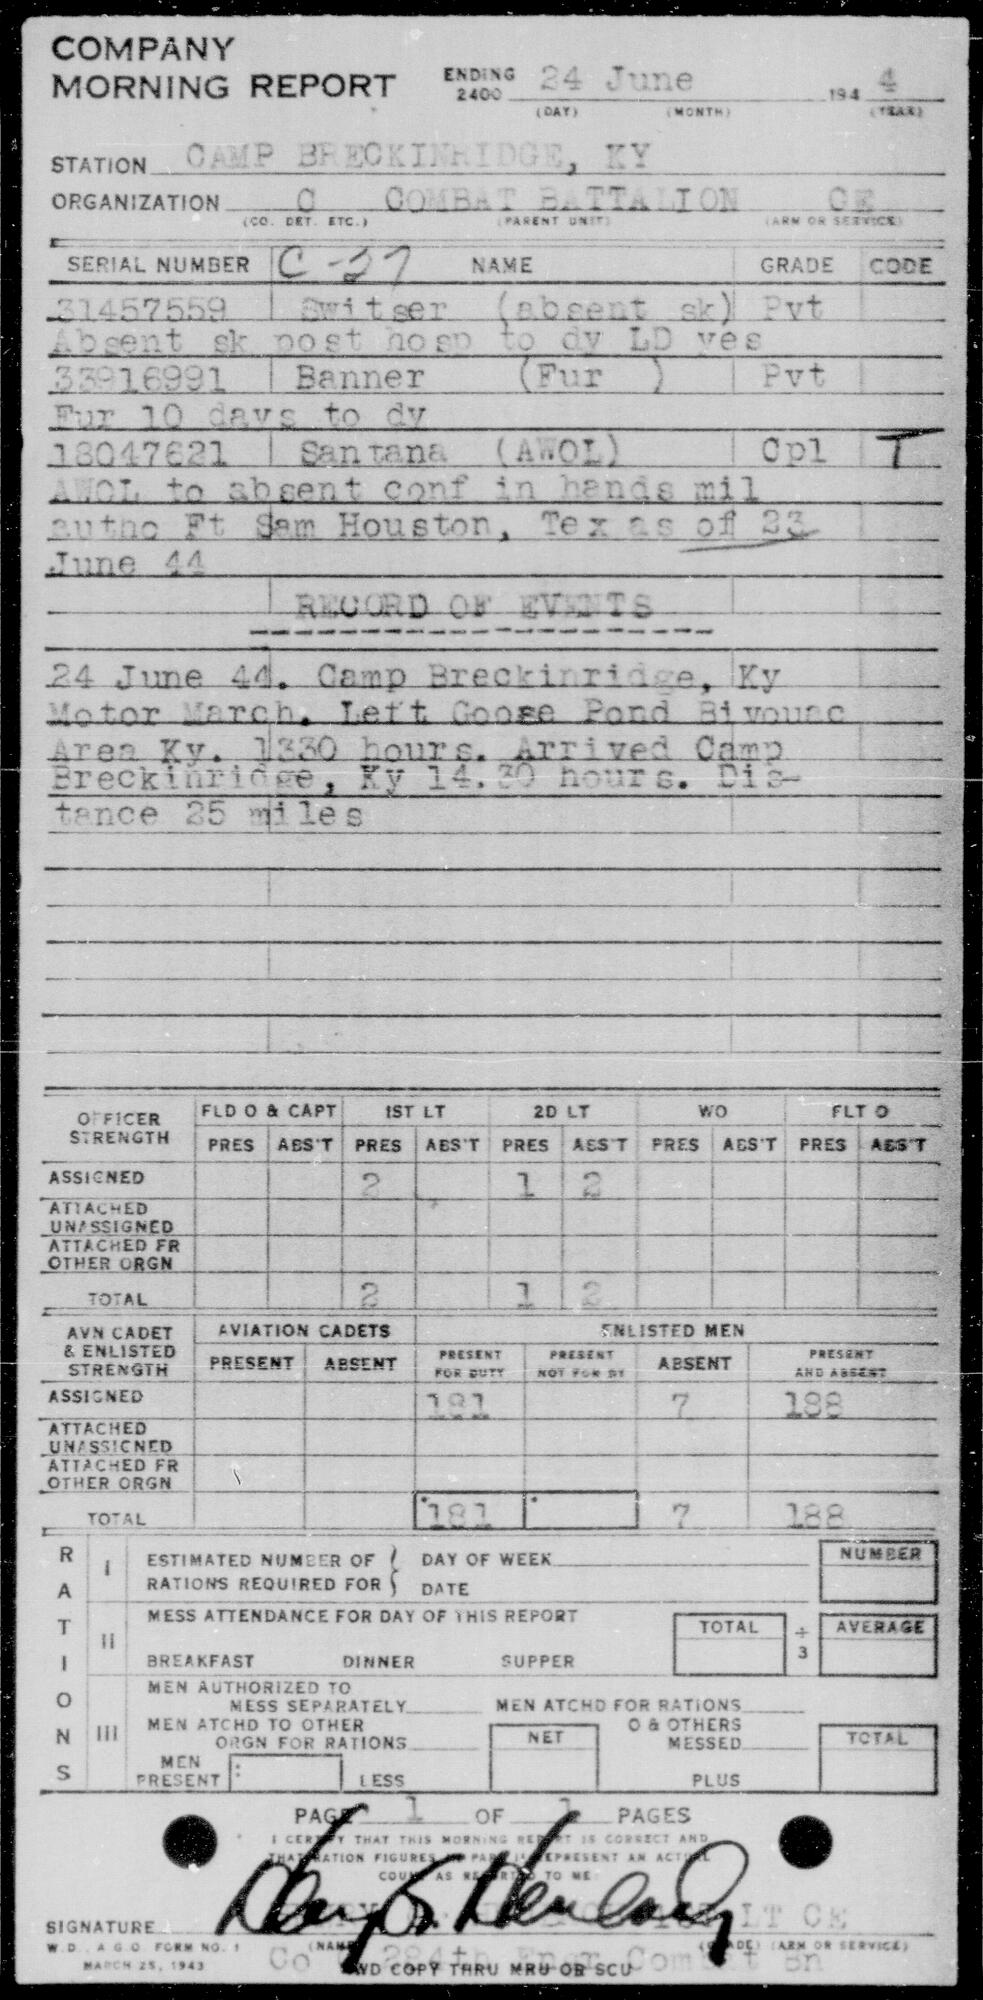 COMPANY
MORNING REPORT ENDING 2400 24 June 194 4
(DAY) (MONTH) (YEAR)
STATION CAMP BRECKINRIDGE, KY
ORGANIZATION C COMBAT BATTALION CE
(CO. DET. ETC.) (PARENT UNIT) (ARM OR SERVICE)
SERIAL NUMBER C-27 NAME GRADE CODE
31457559 Switser (absent sk) Pvt
Absent sk post hosp to dy LD yes
33916991 Banner (Fur ) Pvt
Fur 10 days to dy
18047621 Santana (AWOL) Cpl T
AWOL to absent conf in hands mil
autho Ft Sam Houston, Tex as of 23
June 44
RECORD OF EVENTS
24 June 44. Camp Breckinridge, Ky
Motor March. Left Goose Pond Bivouac
Area Ky. 1330 hours. Arrived Camp
Breckinridge, Ky 14.30 hours. Dis-
tance 25 miles
OFFICER STRENGTH FLD O & CAPT 1ST LT 2D LT WO FLT O
PRES ABS'T PRES ABS'T PRES ABS'T PRES ABS'T PRES ABS'T
ASSIGNED 2 1 2
ATTACHED UNASSIGNED
ATTACHED FR OTHER ORGN
TOTAL 2 1 2
AVN CADET & ENLISTED STRENGTH AVIATION CADETS ENLISTED MEN
PRESENT ABSENT PRESENT FOR DUTY PRESENT NOT FOR DY ABSENT PRESENT AND ABSENT
ASSIGNED 181 7 188
ATTACHED UNASSIGNED
ATTACHED FR OTHER ORGN
TOTAL 181 7 188
RATIONS
I ESTIMATED NUMBER OF RATIONS REQUIRED FOR DAY OF WEEK DATE NUMBER
II MESS ATTENDANCE FOR DAY OF THIS REPORT TOTAL ÷ 3 AVERAGE
BREAKFAST DINNER SUPPER
III MEN AUTHORIZED TO MESS SEPARATELY MEN ATCHD FOR RATIONS
MEN ATCHD TO OTHER ORGN FOR RATIONS NET O & OTHERS MESSED TOTAL
MEN PRESENT LESS PLUS
PAGE 1 OF 1 PAGES
I CERTIFY THAT THIS MORNING REPORT IS CORRECT AND
THAT RATION FIGURES IN PART III REPRESENT AN ACTUAL
COUNT AS REPORTED TO ME
SIGNATURE LT CE
W.D., A.G.O. FORM NO. 1 (NAME) (GRADE) (ARM OR SERVICE)
MARCH 25, 1943 Co 284th Engr Combat Bn
FWD COPY THRU MRU OR SCU